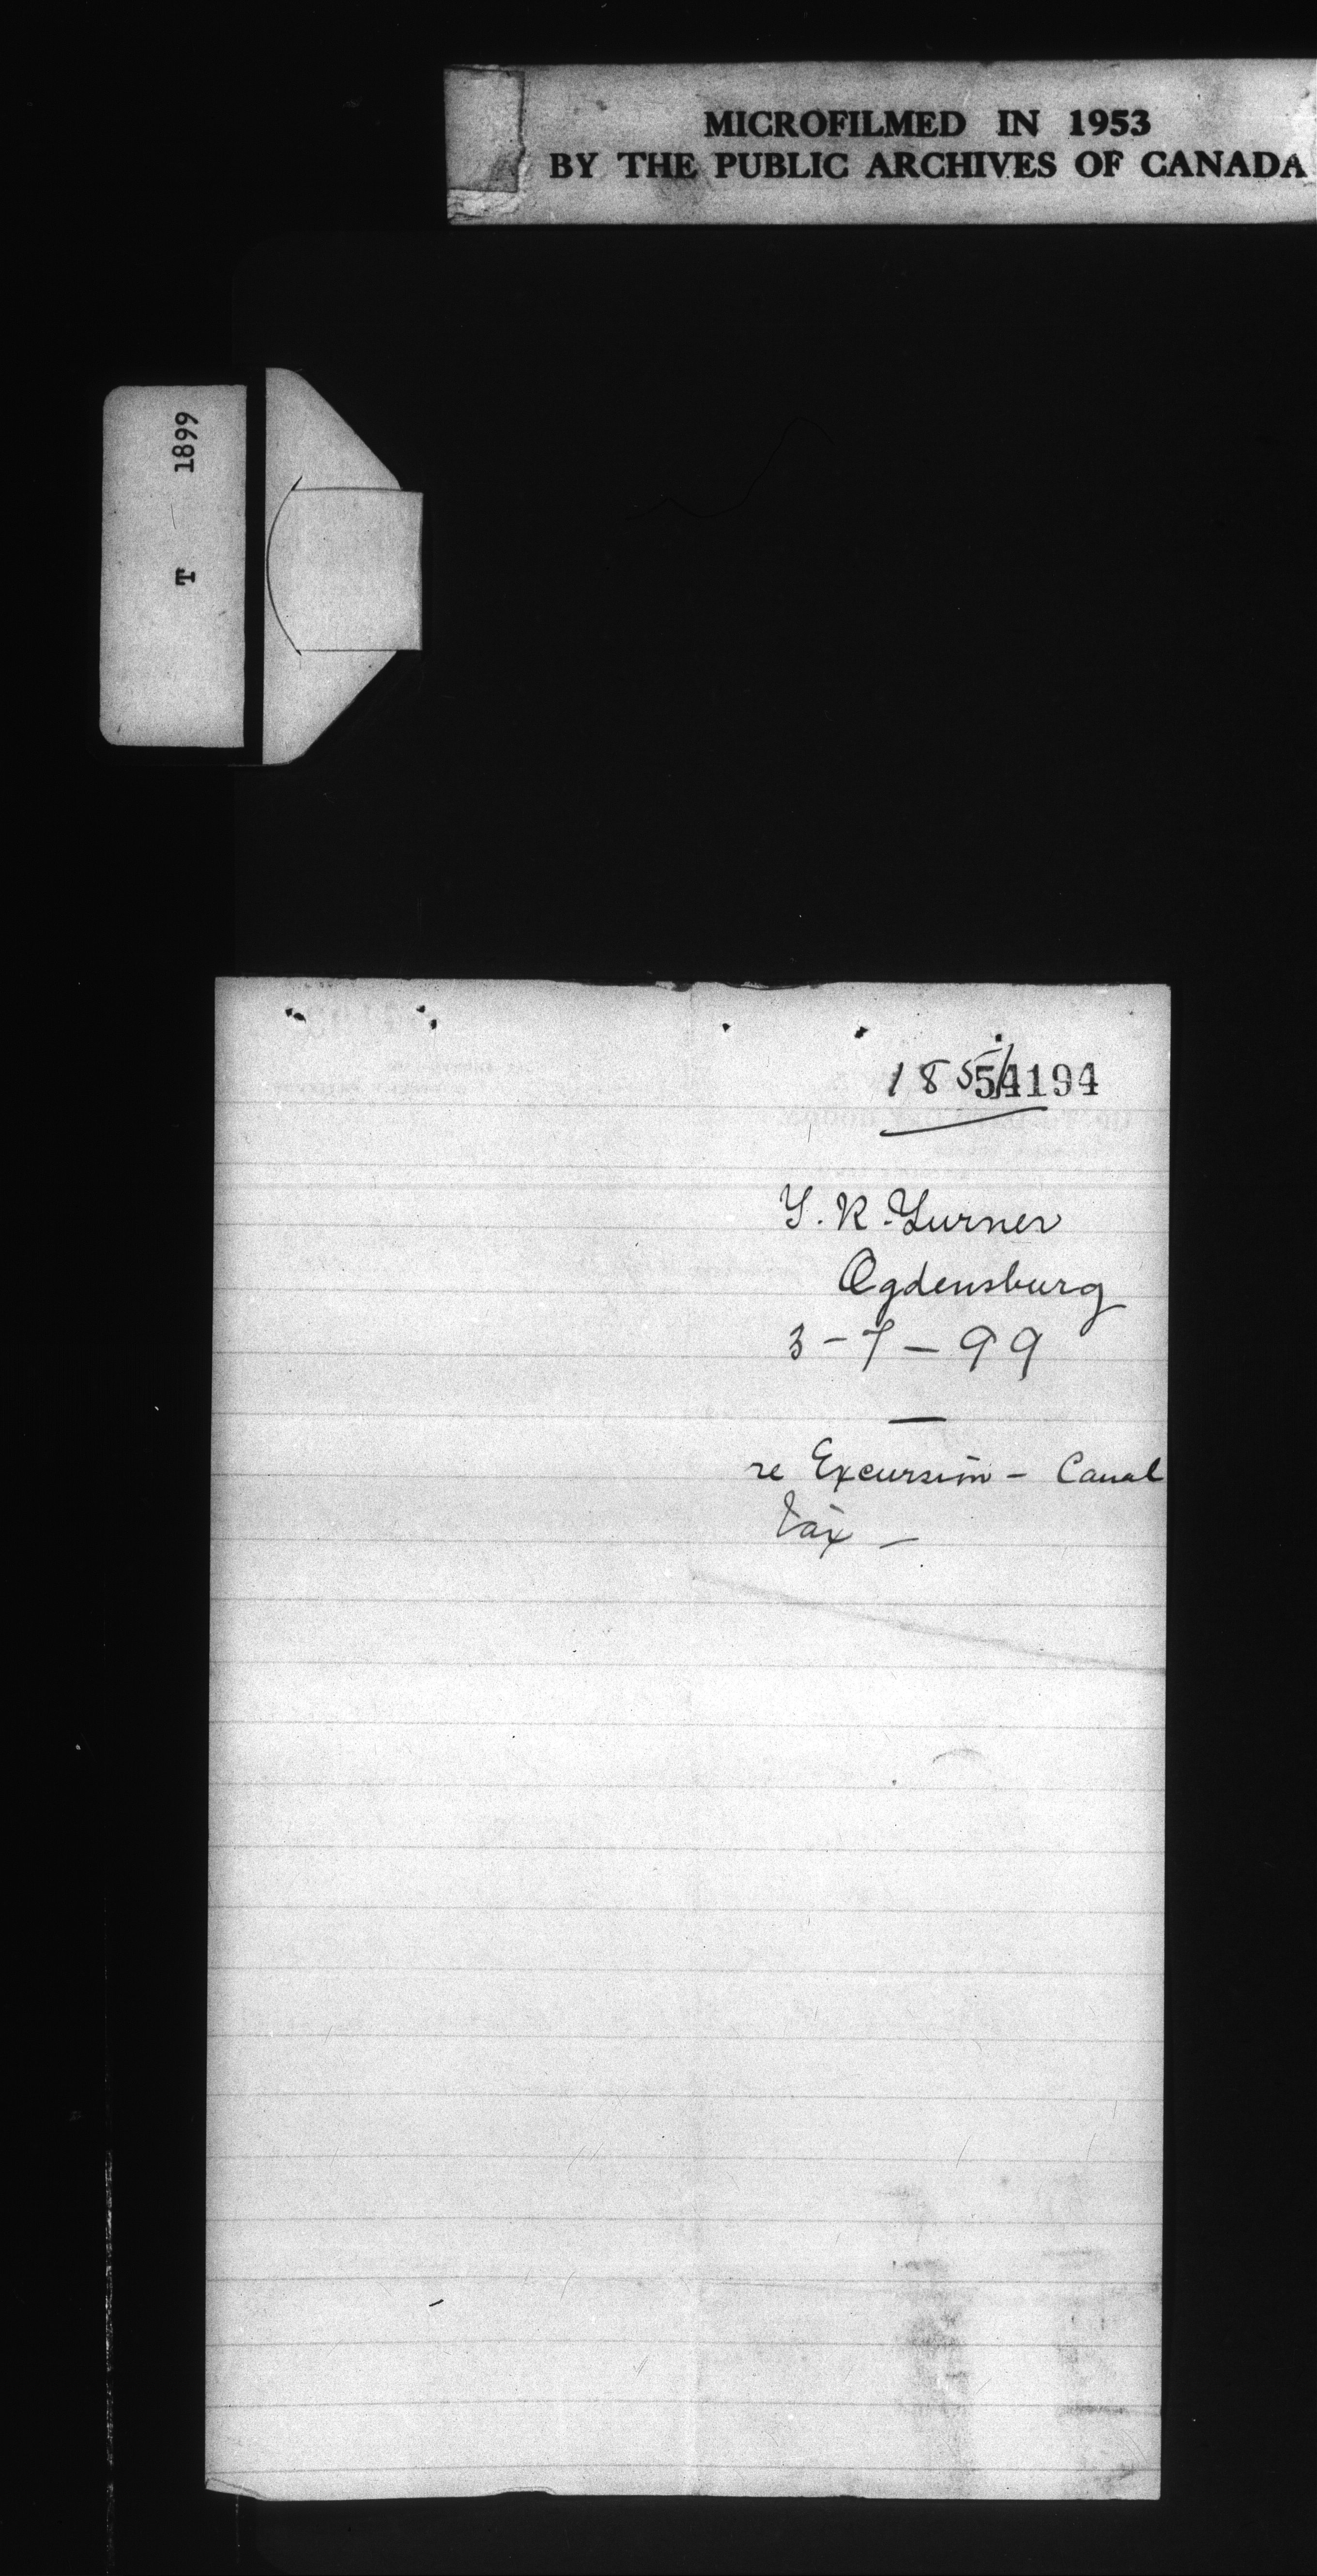 MICROFILMED IN 1953
BY THE PUBLIC ARCHIVES OF CANADA
T 1899
185/
54194
T. R. Turner
Ogdensburg
3-7-99
re Excursion - Canal
tax -